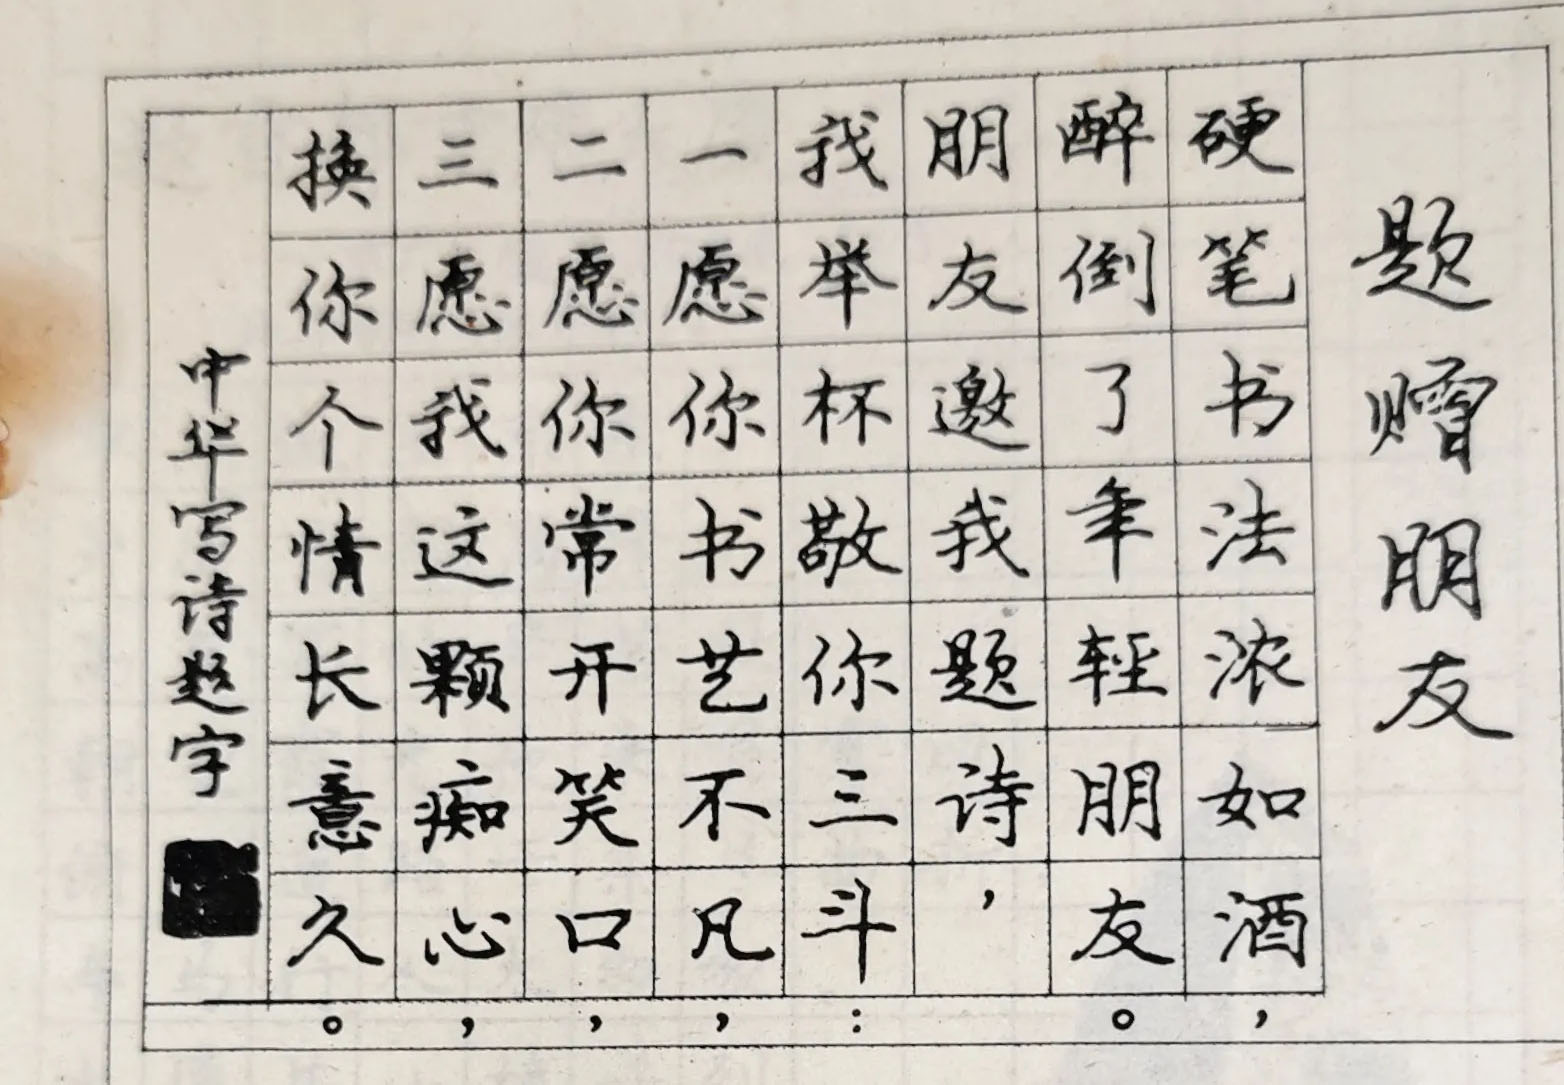 题赠朋友
硬笔书法浓如酒，
醉倒了年轻朋友。
朋友邀我题诗，
我举杯敬你三斗：
一愿你书艺不凡，
二愿你常开笑口，
三愿我这颗痴心，
换你个情长意久。
中华写诗题字